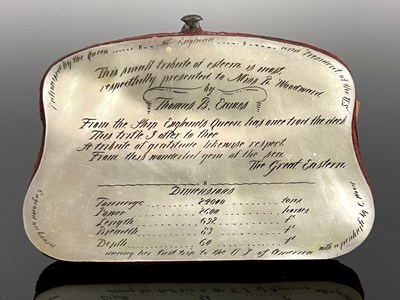 Entertained by the Queen ...... of England ...... and President of the U.S.
This small tribute of esteem is most
respectfully presented to Miss B. Woodward
by
Thomas B.
From the Ship England's Queen has once trod the deck
This trifle I offer to thee
A tribute of gratitude likewise respect
From this wonderful gem of the sea
The Great Eastern
Dimensions
Tonnage 22000 tons
Power 2600 horses
Length 692 f^t
Breadth 83 f^t
Depth 60 f^t
Engraved on board
with a penknife by
during her first trip to the U S of America